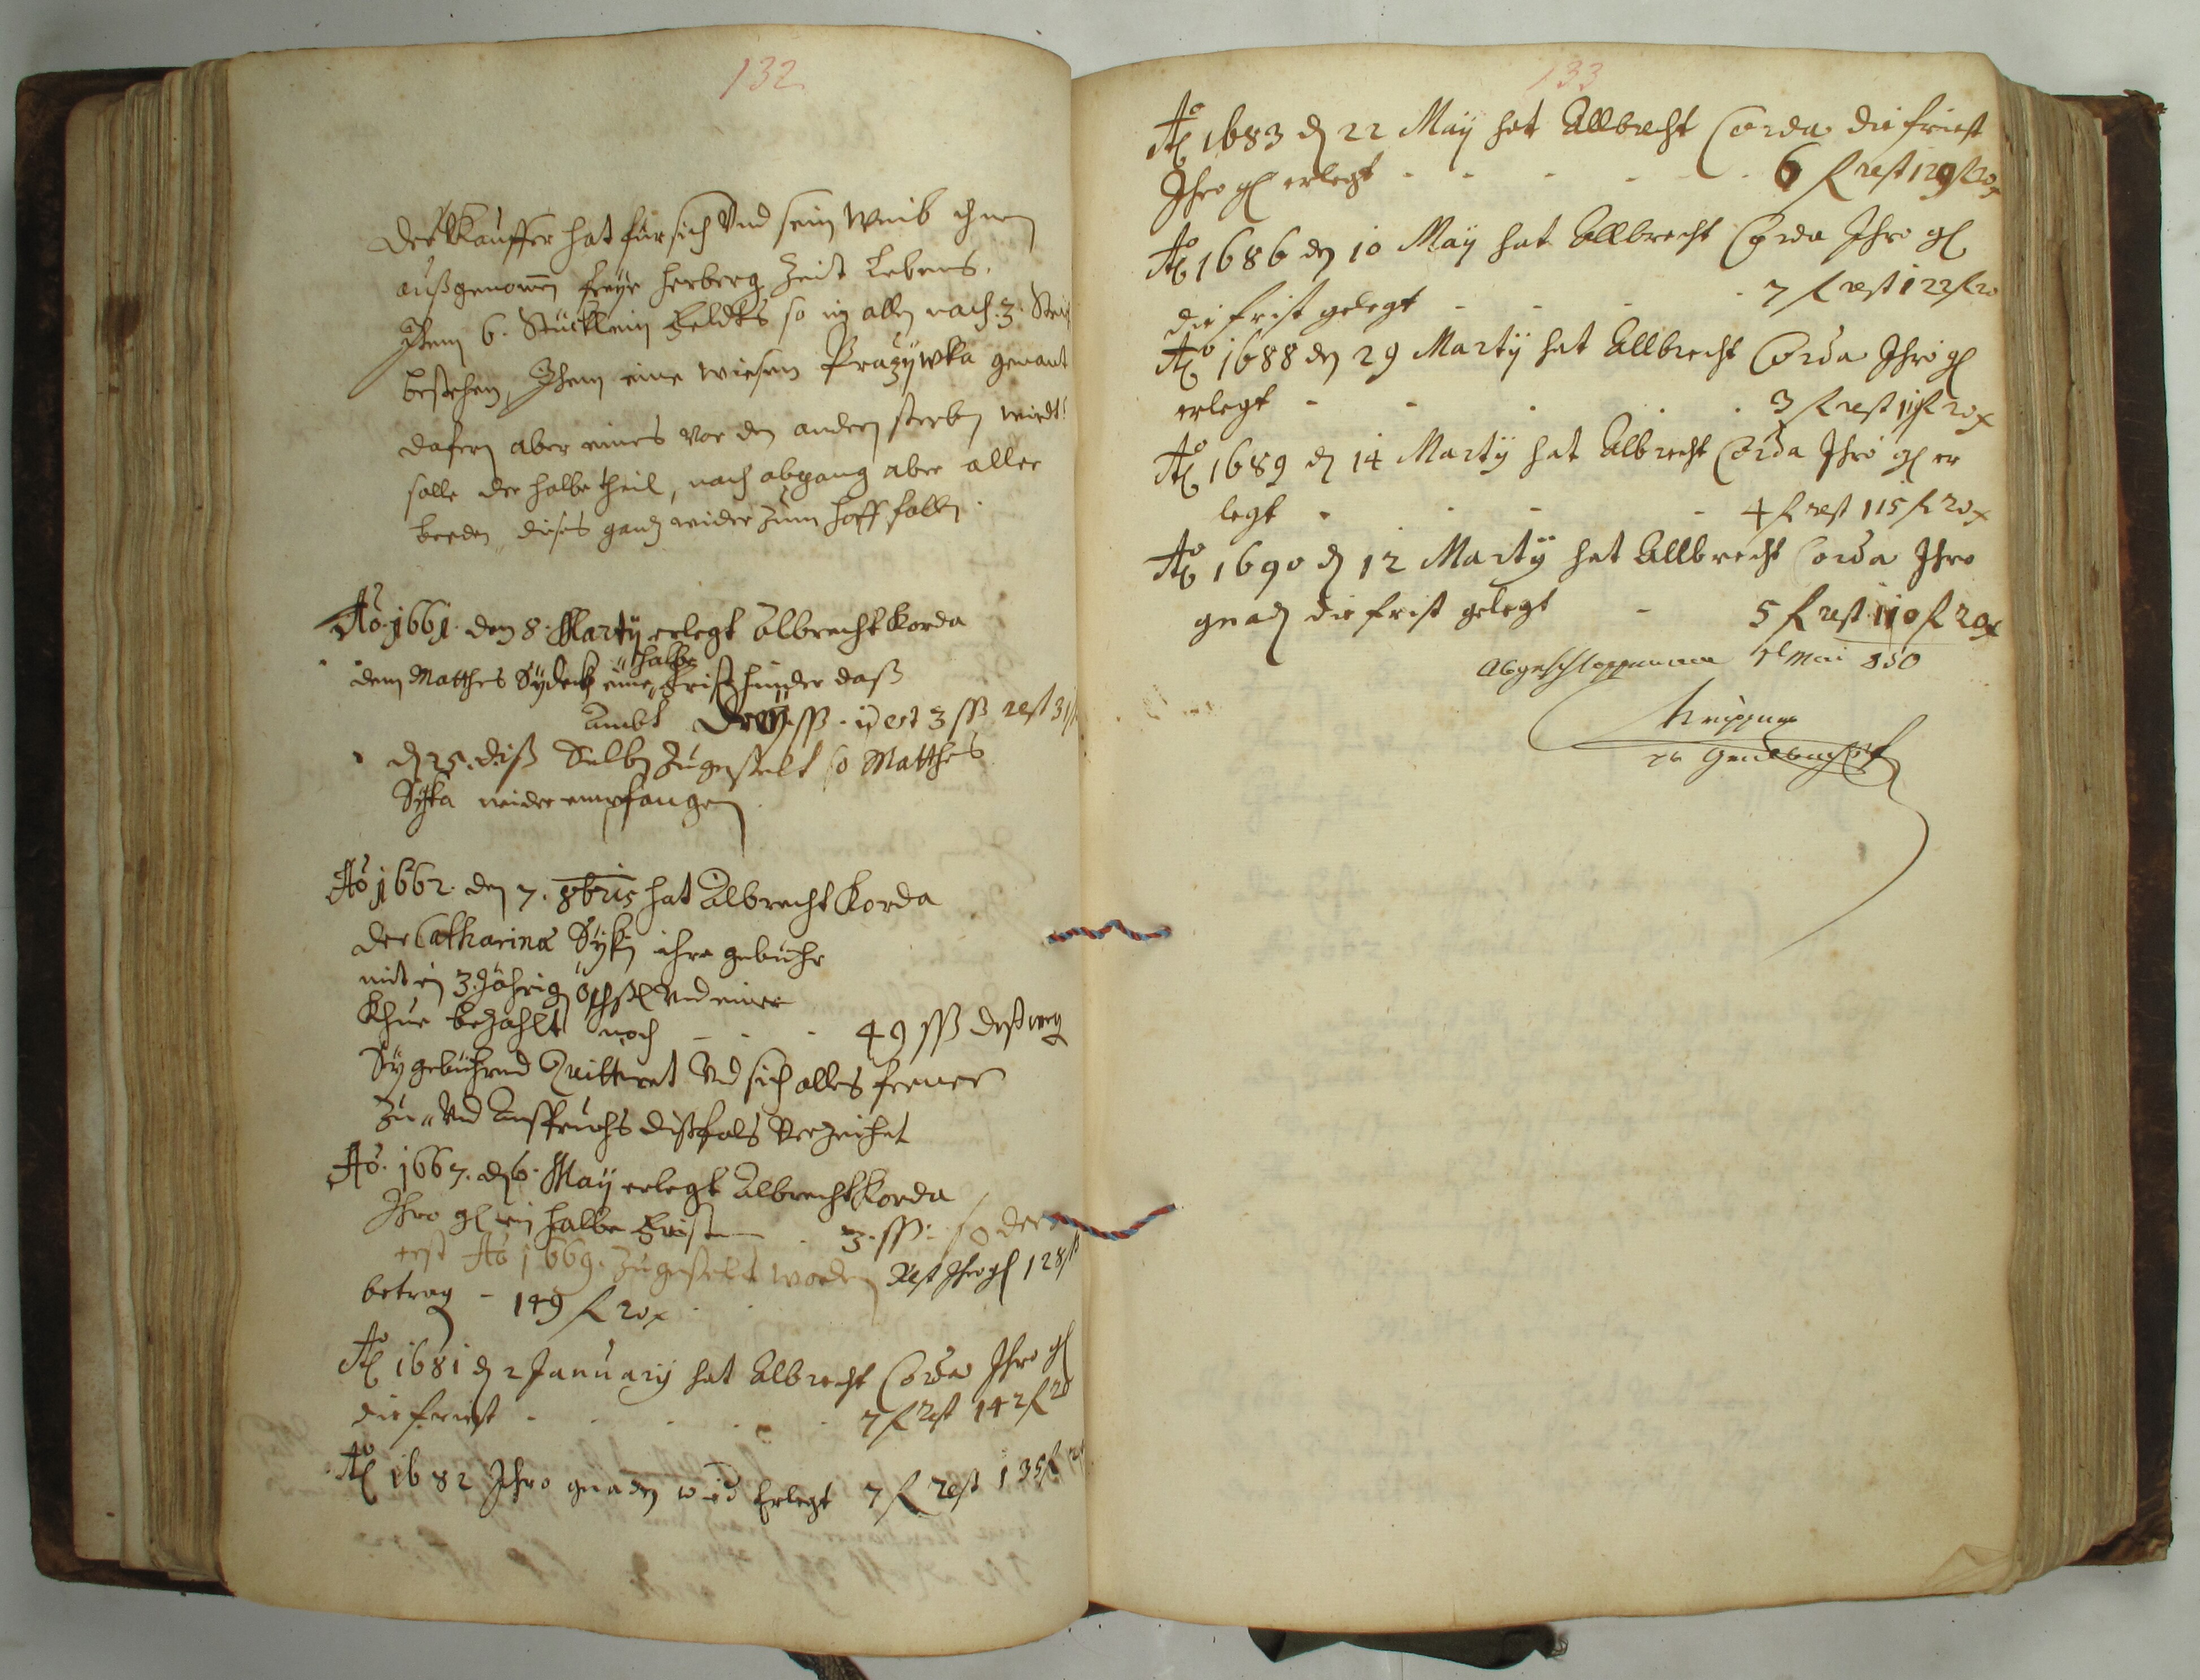 132
Der Kauffer hat für sich Vnd sein Weib ihnen
außgenomen freÿe herberg Zeit Lebens.
Item 6. Stücklein Feldts so in allen nach 3. Strich
bestehen, Item eine wiesen Prazÿwka genant
dafern aber eines Vor den andern sterben wirdt
solle der halbe theil, nach abgang aber aller
beeden, dieses gantz wider zum hoff fallen.
Aõ. 1661. den 8. Martÿ erlegt Albrecht Korda
halbe
dem Matthes eine Frist hinder daß
Ambt Dreÿ ßß. id est 3 ßß rest 31
d 25. diß Selben Zugestelt so Matthes
Sÿka wider empfangen
Aõ 1662. den 7. 8bris hat Albrecht Korda
der Catharina Sÿkin ihre gebühr
mit ein 3. Jährigen Öchßl Vnd einer
Khue bezahlt noch - - - 49 ßß deßweg
Sÿ gebührend Quittiret Vnd sich alles ferner
Zu- Vnd Anspruchs dißfals Verzeichet
Aõ. 1667. d 6. Maÿ erlegt Albrecht Korda
Ihro gl ein halbe Frist - 3. ßß: so der
rest Aõ 1669. Zugestelt worden Rest Ihro gl 128
betrag - 149 fl 20 x
Aõ 1681 d 2 Januarÿ hat Albrecht Corda Ihro gl
die frist - - - 7 fl rest 142 fl 20
Aõ 1682 Ihro gnaden wid Erlegt 7 fl rest 135 fl
133
Aõ 1683 d 22 Maÿ hat Allbrecht Corda die frist
Ihro gl erlegt - - - - - 6 fl rest 129 fl 20 x
Aõ 1686 den 10 Maÿ hat Allbrecht Corda Ihro gl
die frist gelegt - - - - 7 fl rest 122 fl 20
Aõ 1688 den 29 Martÿ hat Allbrecht Corda Ihro gl
erlegt - - - - - 3 fl rest 119 fl 20 x
Aõ 1689 d 14 Martÿ hat Albrecht Corda Ihro gl er
legt - - - - 4 fl rest 115 fl 20 x
Aõ 1690 d 12 Martÿ hat Allbrecht Corda Ihro
gnaden die frist gelegt - 5 fl rest 110 fl 20 x
Mai 850